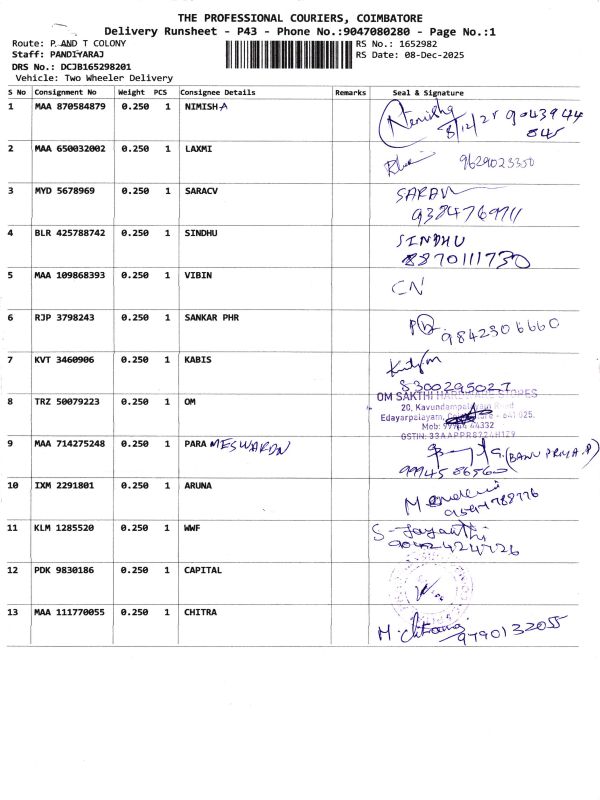 THE PROFESSIONAL COURIERS, COIMBATORE
Delivery Runsheet - P43 - Phone No.:9047080280 - Page No.:1
Route: P.AND T COLONY
RS No.: 1652982
Staff: PANDIYARAJ
RS Date: 08-Dec-2025
DRS No.: DCJB165298201
Vehicle: Two Wheeler Delivery
S No Consignment No Weight PCS Consignee Details Remarks Seal & Signature
1 MAA 870584879 0.250 1 NIMISHA Nemisha 9043944
8/12/25 845
2 MAA 650032002 0.250 1 LAXMI 9629023350
3 MYD 5678969 0.250 1 SARACV SARAV
9384769711
4 BLR 425788742 0.250 1 SINDHU SINDHU
8870111730
5 MAA 109868393 0.250 1 VIBIN CN
6 RJP 3798243 0.250 1 SANKAR PHR 9842306660
7 KVT 3460906 0.250 1 KABIS
8300295027
8 TRZ 50079223 0.250 1 OM OM SAKTHI HARDWARE STORES
20, Kavundampalayam Road
Edayarpalayam, Coimbatore - 641 025.
Mob: 44332
GSTIN: 33AAPPR8224H1Z9
9 MAA 714275248 0.250 1 PARAMESWARDN (BANU PRIYA.P)
9994586560
10 IXM 2291801 0.250 1 ARUNA
11 KLM 1285520 0.250 1 WWF S-Jayanthi
9042424726
12 PDK 9830186 0.250 1 CAPITAL
13 MAA 111770055 0.250 1 CHITRA M. Chitra
9790132055